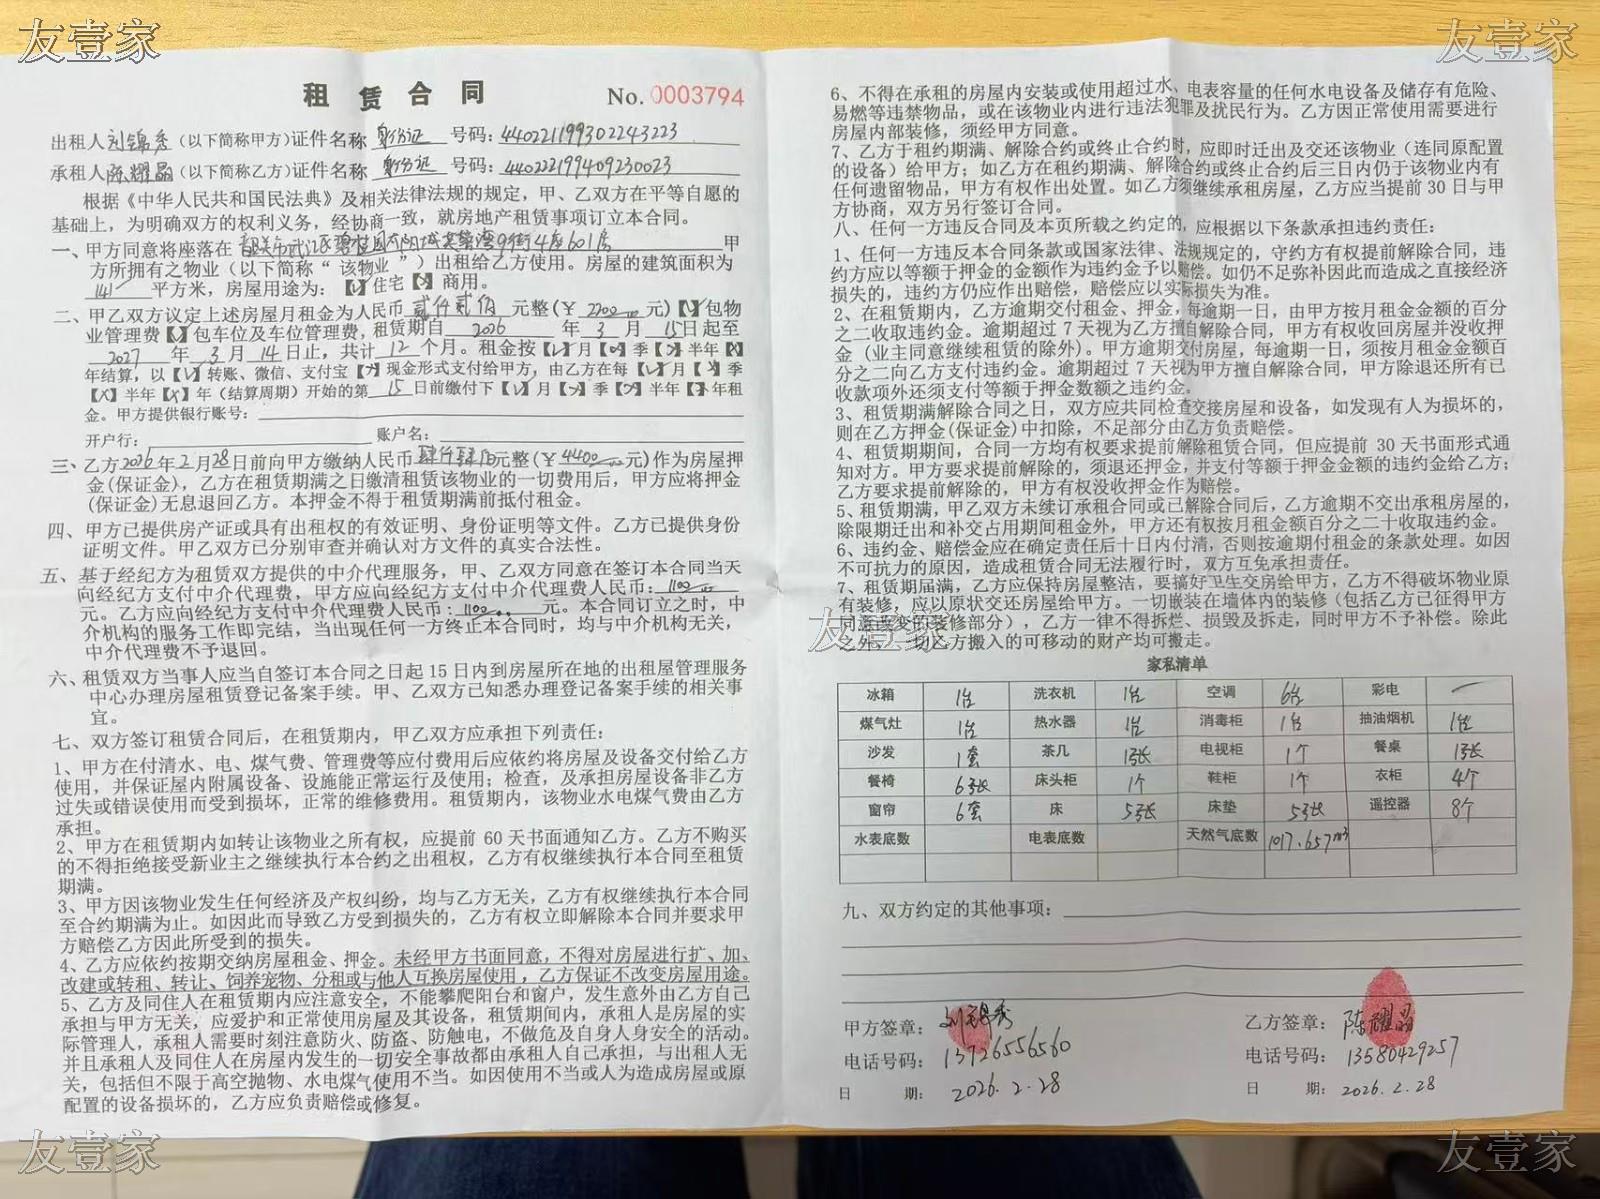 友壹家
友壹家
租赁合同
No. 0003794
出租人刘锦秀(以下简称甲方)证件名称 身份证 号码: 440221199302243223
承租人陈耀晶(以下简称乙方)证件名称 身份证 号码: 440222199409230023
根据《中华人民共和国民法典》及相关法律法规的规定,甲、乙双方在平等自愿的
基础上,为明确双方的权利义务,经协商一致,就房地产租赁事项订立本合同。
一、甲方同意将座落在 韶关市武江区碧桂园太阳城芙蓉湾9街4座601房 甲
方所拥有之物业(以下简称“该物业”)出租给乙方使用。房屋的建筑面积为
141 平方米,房屋用途为:【√】住宅【×】商用。
二、甲乙双方议定上述房屋月租金为人民币 贰仟贰佰 元整(¥ 2200 元)【√】包物
业管理费【√】包车位及车位管理费,租赁期自 2026 年 3 月 15日起至
2027 年 3 月 14 日止,共计 12 个月。租金按【√】月【×】季【×】半年【×】
年结算,以【√】转账、微信、支付宝【×】现金形式支付给甲方,由乙方在每【√】月【×】季
【×】半年【×】年(结算周期)开始的第 15 日前缴付下【√】月【×】季【×】半年【×】年租
金。甲方提供银行账号:
开户行: 账户名:
三、乙方2026年2月28日前向甲方缴纳人民币 肆仟肆佰元整(¥ 4400 元)作为房屋押
金(保证金),乙方在租赁期满之日缴清租赁该物业的一切费用后,甲方应将押金
(保证金)无息退回乙方。本押金不得于租赁期满前抵付租金。
四、甲方已提供房产证或具有出租权的有效证明、身份证明等文件。乙方已提供身份
证明文件。甲乙双方已分别审查并确认对方文件的真实合法性。
五、基于经纪方为租赁双方提供的中介代理服务,甲、乙双方同意在签订本合同当天
向经纪方支付中介代理费,甲方应向经纪方支付中介代理费人民币: 1100
元。乙方应向经纪方支付中介代理费人民币: 1100 元。本合同订立之时,中
介机构的服务工作即完结,当出现任何一方终止本合同时,均与中介机构无关,
中介代理费不予退回。
六、租赁双方当事人应当自签订本合同之日起 15 日内到房屋所在地的出租屋管理服务
中心办理房屋租赁登记备案手续。甲、乙双方已知悉办理登记备案手续的相关事
宜。
七、双方签订租赁合同后,在租赁期内,甲乙双方应承担下列责任:
1、甲方在付清水、电、煤气费、管理费等应付费用后应依约将房屋及设备交付给乙方
使用,并保证屋内附属设备、设施能正常运行及使用;检查,及承担房屋设备非乙方
过失或错误使用而受到损坏,正常的维修费用。租赁期内,该物业水电煤气费由乙方
承担。
2、甲方在租赁期内如转让该物业之所有权,应提前 60 天书面通知乙方。乙方不购买
的不得拒绝接受新业主之继续执行本合约之出租权,乙方有权继续执行本合同至租赁
期满。
3、甲方因该物业发生任何经济及产权纠纷,均与乙方无关,乙方有权继续执行本合同
至合约期满为止。如因此而导致乙方受到损失的,乙方有权立即解除本合同并要求甲
方赔偿乙方因此所受到的损失。
4、乙方应依约按期交纳房屋租金、押金。未经甲方书面同意,不得对房屋进行扩、加、
改建或转租、转让、饲养宠物、分租或与他人互换房屋使用,乙方保证不改变房屋用途。
5、乙方及同住人在租赁期内应注意安全,不能攀爬阳台和窗户,发生意外由乙方自己
承担与甲方无关,应爱护和正常使用房屋及其设备,租赁期间内,承租人是房屋的实
际管理人,承租人需要时刻注意防火、防盗、防触电,不做危及自身人身安全的活动。
并且承租人及同住人在房屋内发生的一切安全事故都由承租人自己承担,与出租人无
关,包括但不限于高空抛物、水电煤气使用不当。如因使用不当或人为造成房屋或原
配置的设备损坏的,乙方应负责赔偿或修复。
6、不得在承租的房屋内安装或使用超过水、电表容量的任何水电设备及储存有危险、
易燃等违禁物品,或在该物业内进行违法犯罪及扰民行为。乙方因正常使用需要进行
房屋内部装修,须经甲方同意。
7、乙方于租约期满、解除合约或终止合约时,应即时迁出及交还该物业(连同原配置
的设备)给甲方;如乙方在租约期满、解除合约或终止合约后三日内仍于该物业内有
任何遗留物品,甲方有权作出处置。如乙方须继续承租房屋,乙方应当提前 30 日与甲
方协商,双方另行签订合同。
八、任何一方违反合同及本页所载之约定的,应根据以下条款承担违约责任:
1、任何一方违反本合同条款或国家法律、法规规定的,守约方有权提前解除合同,违
约方应以等额于押金的金额作为违约金予以赔偿。如仍不足弥补因此而造成之直接经济
损失的,违约方仍应作出赔偿,赔偿应以实际损失为准。
2、在租赁期内,乙方逾期交付租金、押金,每逾期一日,由甲方按月租金金额的百分
之二收取违约金。逾期超过 7 天视为乙方擅自解除合同,甲方有权收回房屋并没收押
金(业主同意继续租赁的除外)。甲方逾期交付房屋,每逾期一日,须按月租金金额百
分之二向乙方支付违约金。逾期超过 7 天视为甲方擅自解除合同,甲方除退还所有已
收款项外还须支付等额于押金数额之违约金。
3、租赁期满解除合同之日,双方应共同检查交接房屋和设备,如发现有人为损坏的,
则在乙方押金(保证金)中扣除,不足部分由乙方负责赔偿。
4、租赁期期间,合同一方均有权要求提前解除租赁合同,但应提前 30 天书面形式通
知对方。甲方要求提前解除的,须退还押金,并支付等额于押金金额的违约金给乙方;
乙方要求提前解除的,甲方有权没收押金作为赔偿。
5、租赁期满,甲乙双方未续订承租合同或已解除合同后,乙方逾期不交出承租房屋的,
除限期迁出和补交占用期间租金外,甲方还有权按月租金额百分之二十收取违约金。
6、违约金、赔偿金应在确定责任后十日内付清,否则按逾期付租金的条款处理。如因
不可抗力的原因,造成租赁合同无法履行时,双方互免承担责任。
7、租赁期届满,乙方应保持房屋整洁,要搞好卫生交房给甲方,乙方不得破坏物业原
有装修,应以原状交还房屋给甲方。一切嵌装在墙体内的装修(包括乙方已征得甲方
同意改变的装修部分),乙方一律不得拆烂、损毁及拆走,同时甲方不予补偿。除此
之外,一切乙方搬入的可移动的财产均可搬走。
友壹家
家私清单
冰箱 1台 洗衣机 1台 空调 6台 彩电 一
煤气灶 1台 热水器 1台 消毒柜 1台 抽油烟机 1台
沙发 1套 茶几 1张 电视柜 1个 餐桌 1张
餐椅 6张 床头柜 1个 鞋柜 1个 衣柜 4个
窗帘 6套 床 5张 床垫 5张 遥控器 8个
水表底数 电表底数 天然气底数 1017.657m³
九、双方约定的其他事项:
甲方签章: 刘锦秀 乙方签章: 陈耀晶
电话号码: 13726556560 电话号码: 13580429257
日 期: 2026.2.28 日 期: 2026.2.28
友壹家
友壹家